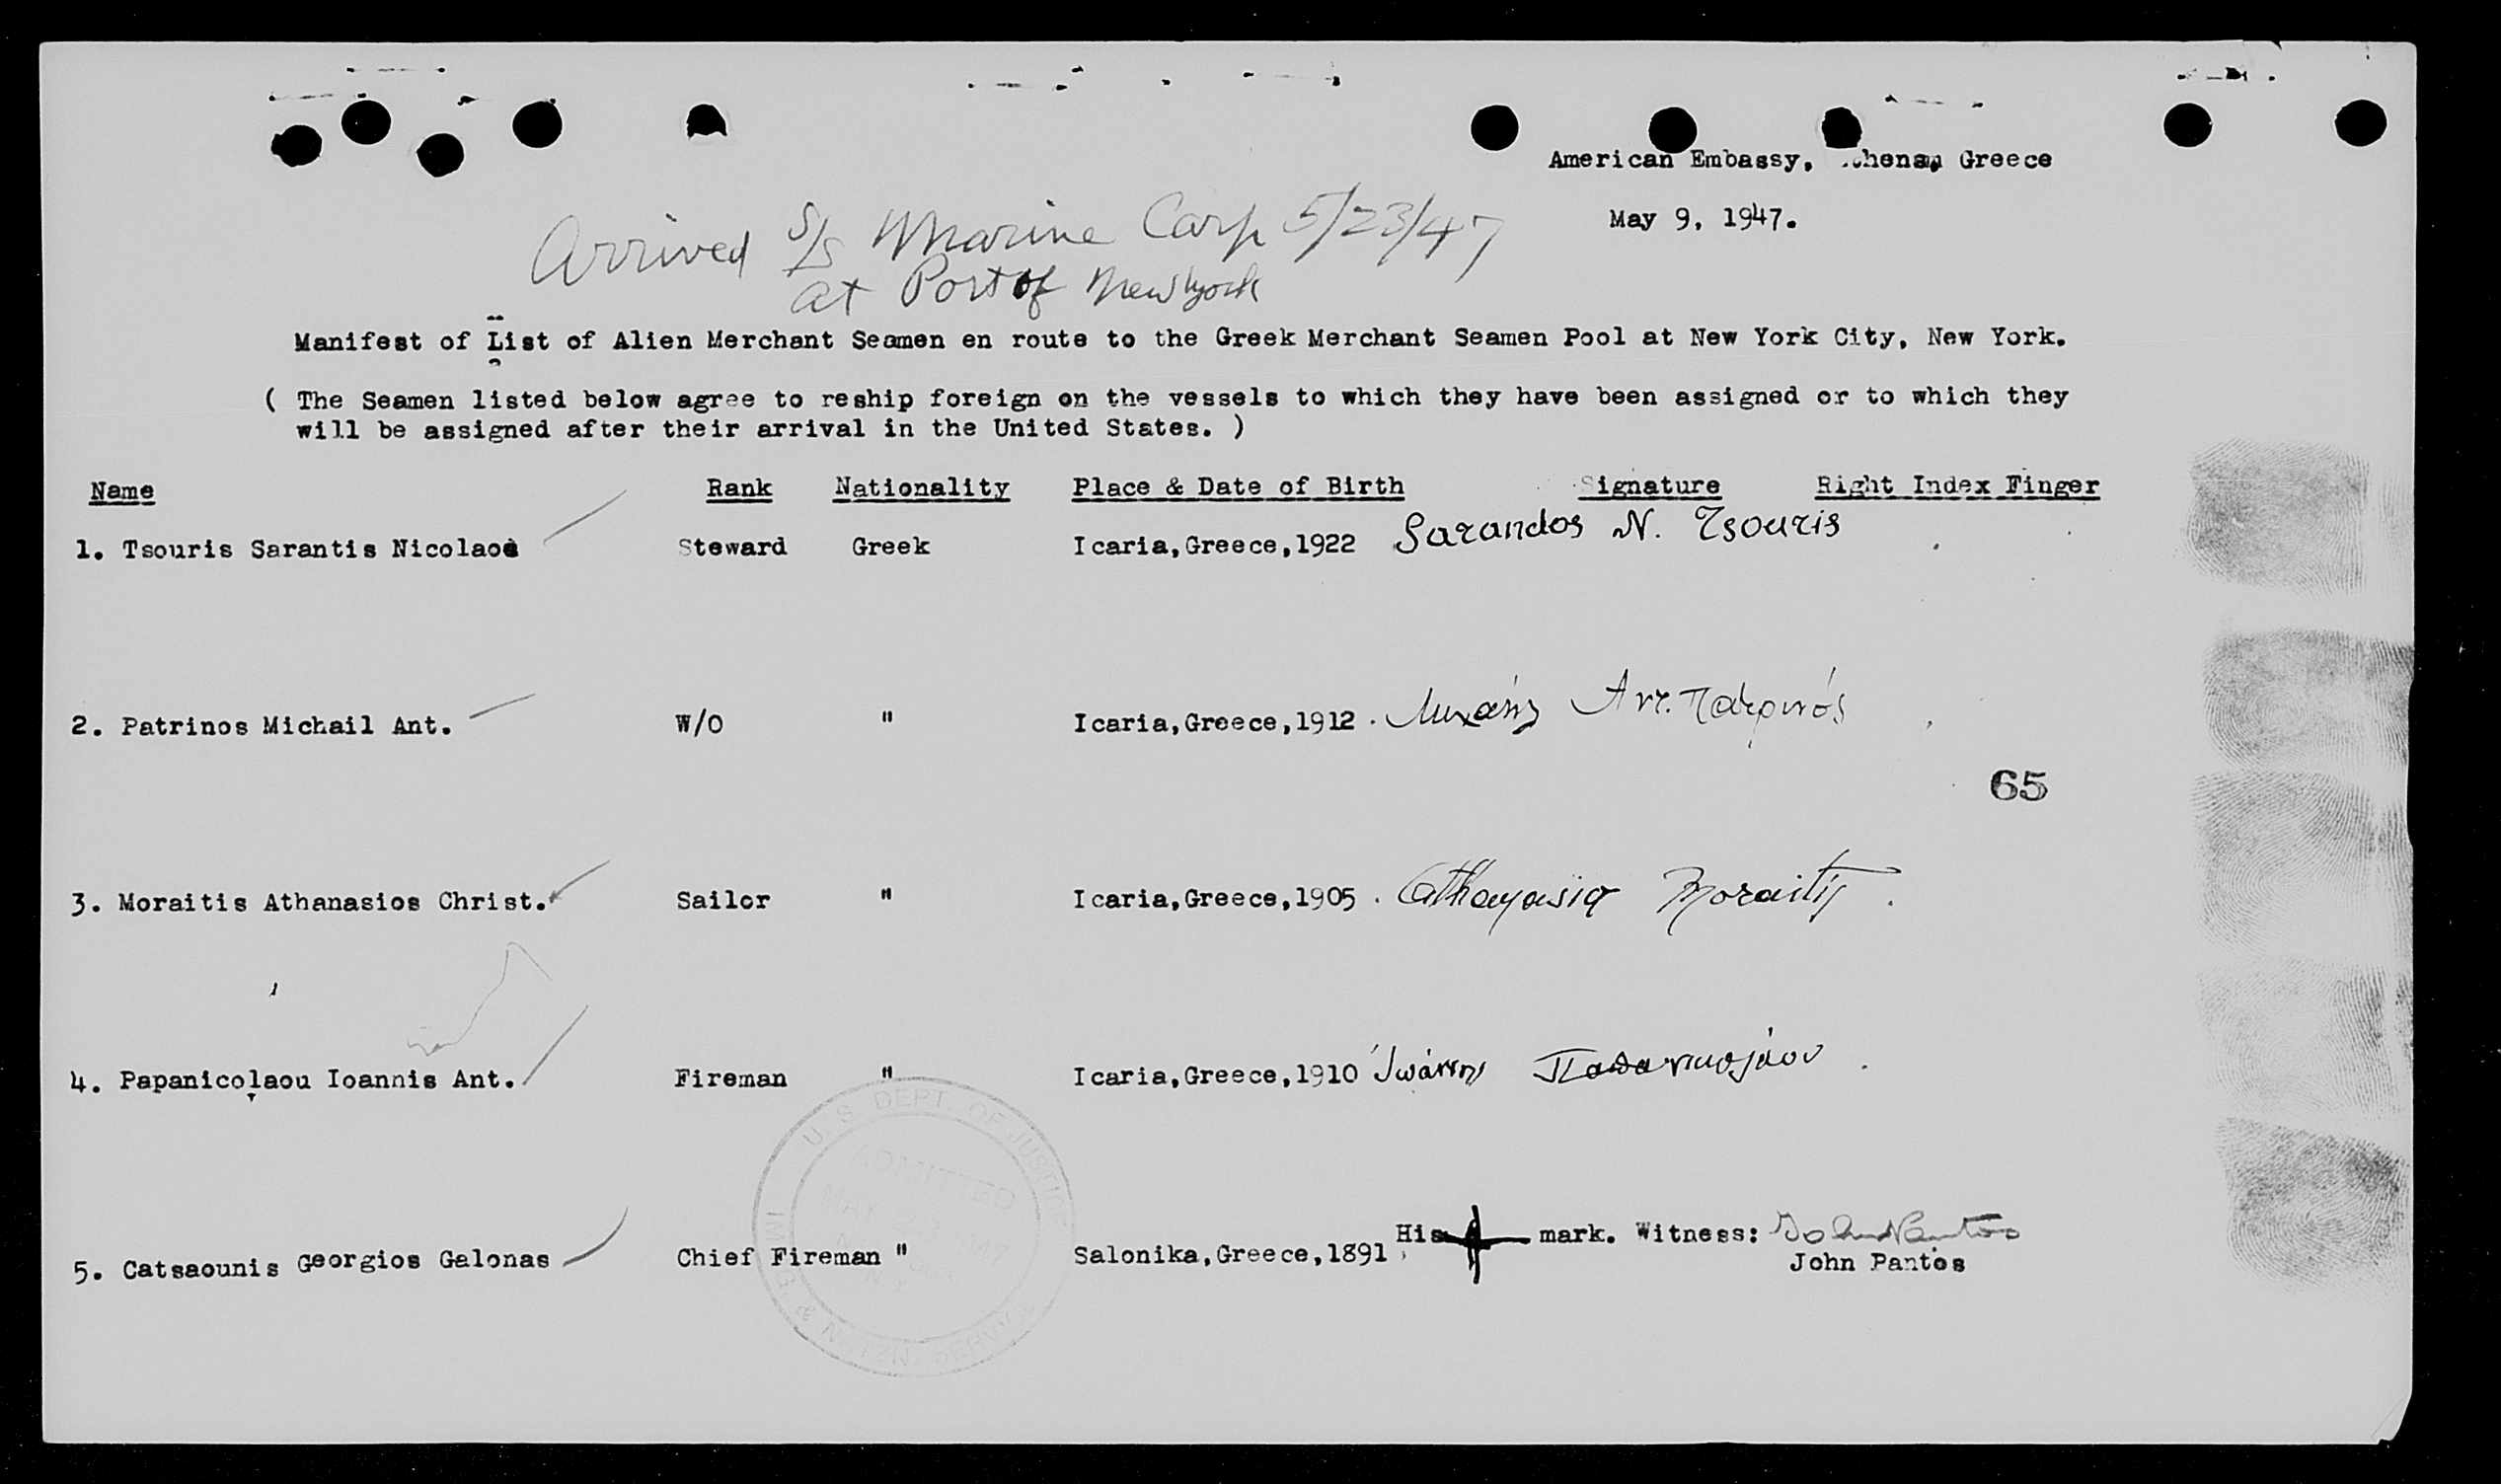 American Embassy, Greece
May 9, 1947.
Arrived S/S Marine Carp 5/23/47
at Port of New York
Manifest of List of Alien Merchant Seamen en route to the Greek Merchant Seamen Pool at New York City, New York.
( The Seamen listed below agree to reship foreign on the vessels to which they have been assigned or to which they
will be assigned after their arrival in the United States. )
Name Rank Nationality Place & Date of Birth Signature Right Index Finger
1. Tsouris Sarantis Nicolaos Steward Greek Icaria,Greece,1922 Sarandos N. Tsouris
2. Patrinos Michail Ant. W/O " Icaria,Greece,1912 . Μιχαήλ Αντ. Πατρινός
65
3. Moraitis Athanasios Christ. Sailor " Icaria,Greece,1905 . Moraitis
4. Papanicolaou Ioannis Ant. Fireman " Icaria,Greece,1910 Ἰωάννης Παπανικολάου
U. S. DEPT. OF JUSTICE
ADMITTED
5. Catsaounis Georgios Galonas Chief Fireman " Salonika,Greece,1891 His mark. Witness: John Pantos
John Pantos